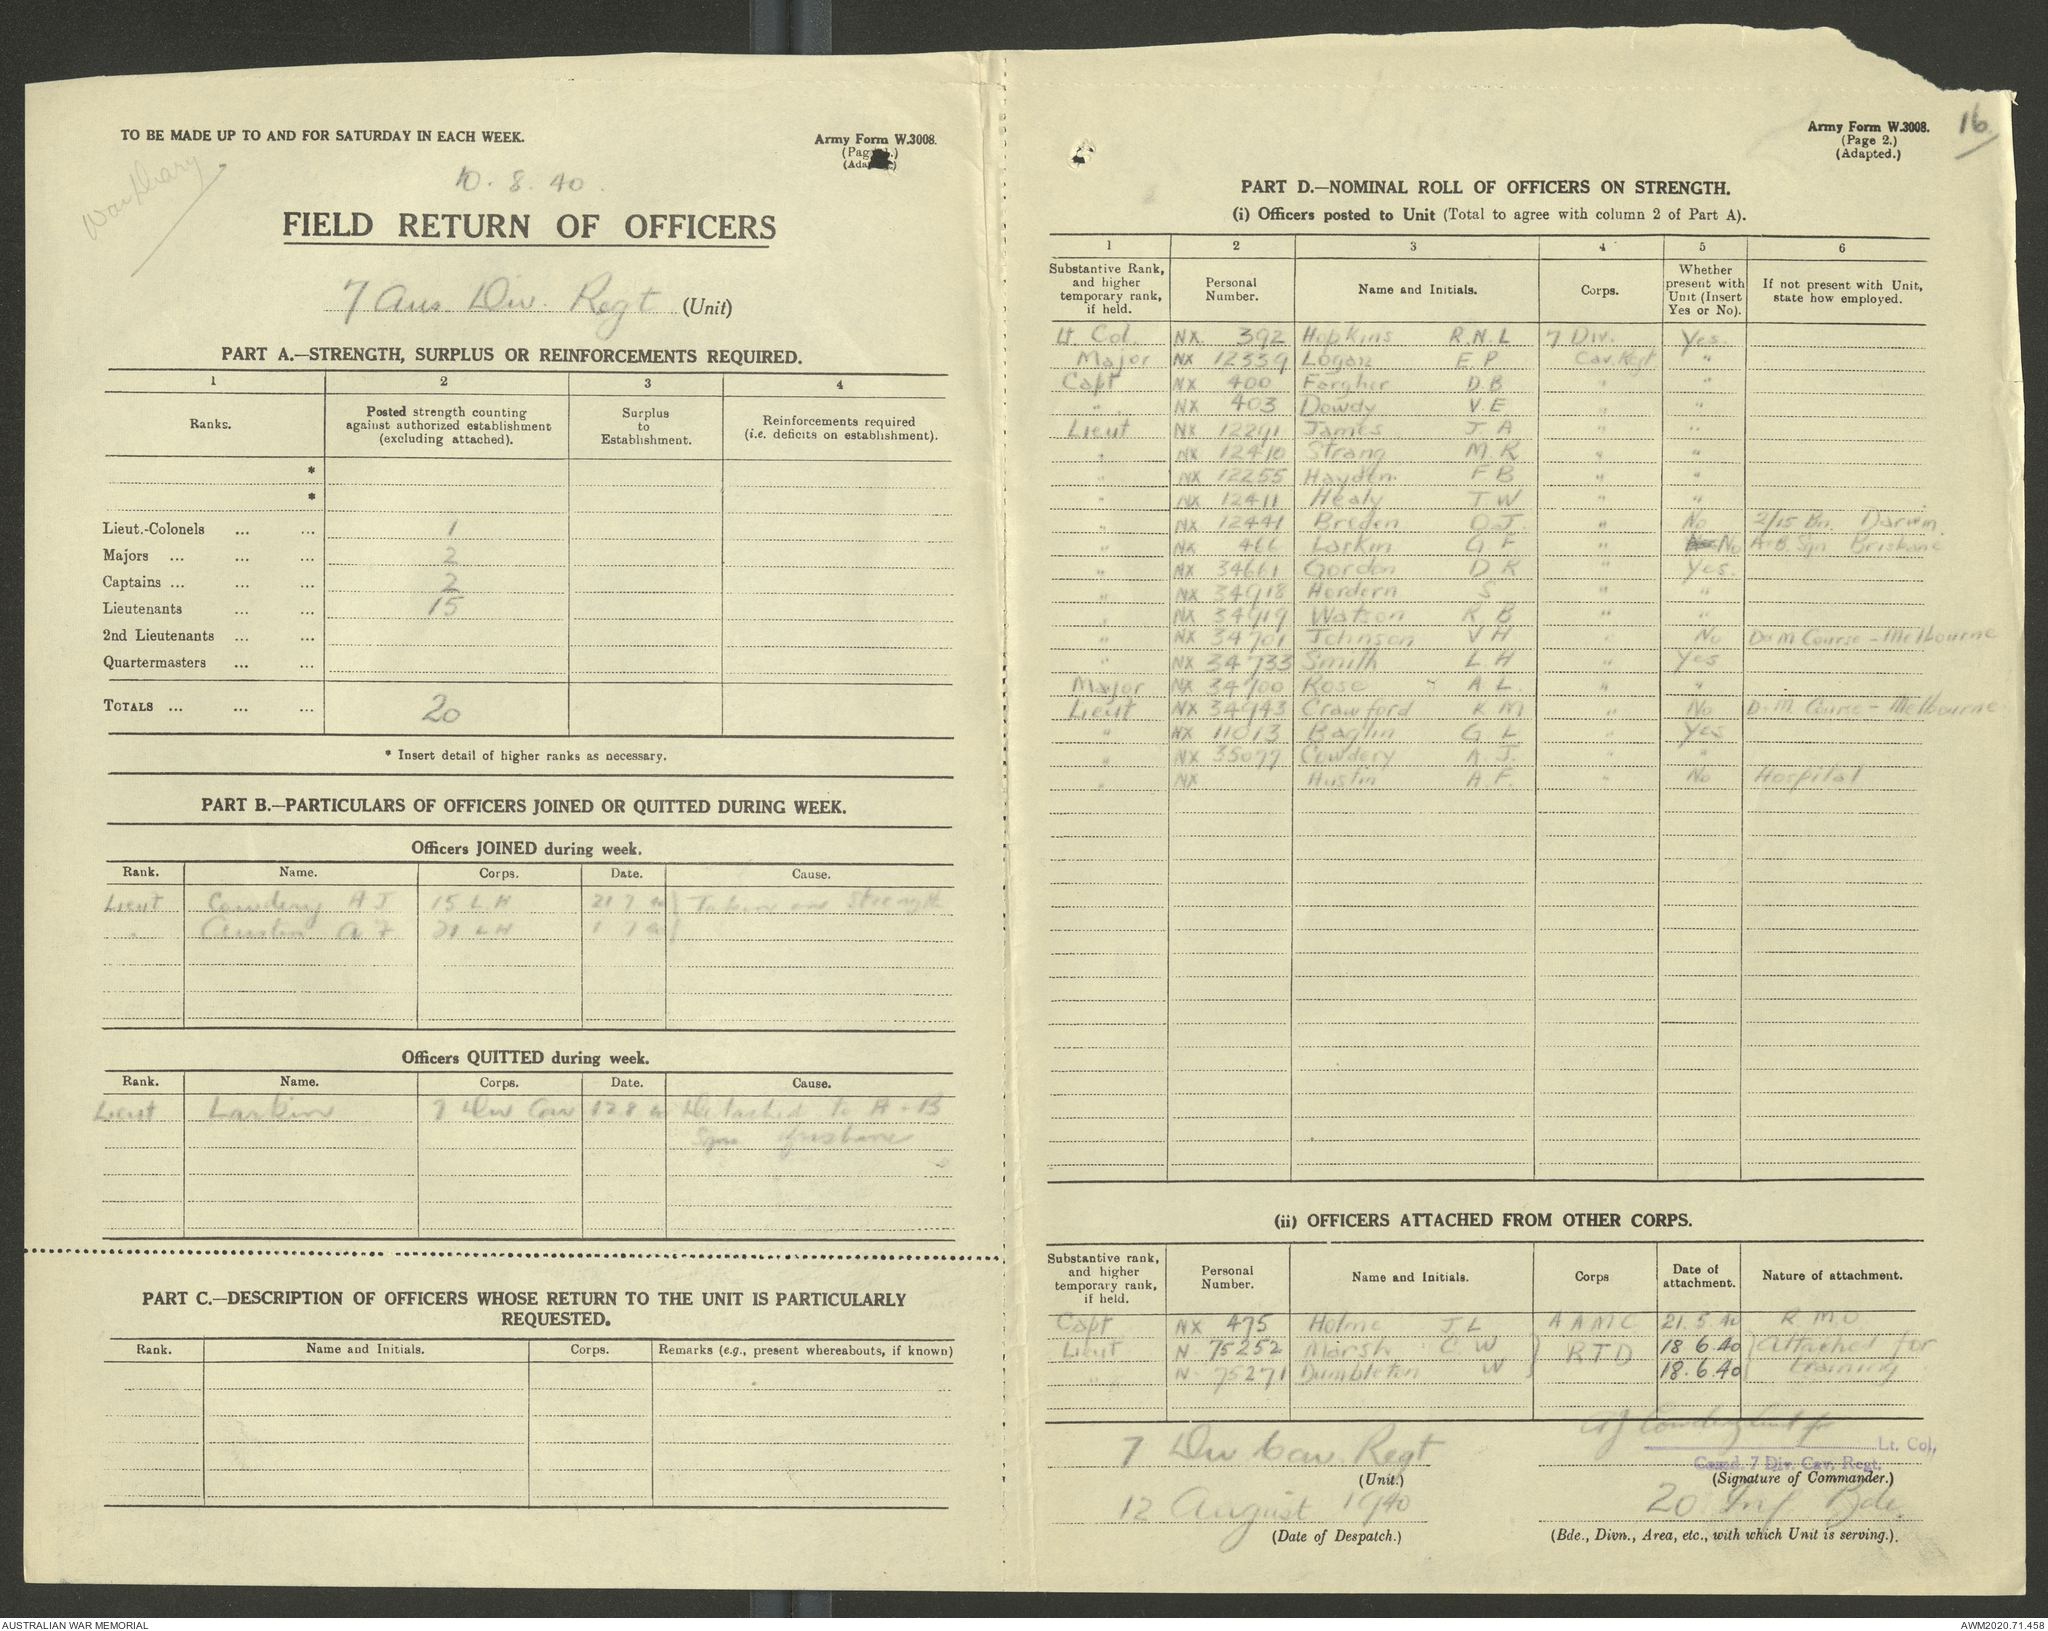 TO BE MADE UP TO AND FOR SATURDAY IN EACH WEEK.
Army Form W.3008.
(Page 1.)
(Adapted.)
War Diary
10. 8. 40.
FIELD RETURN OF OFFICERS
7 Aus Div. Regt (Unit)
PART A.—STRENGTH, SURPLUS OR REINFORCEMENTS REQUIRED.
1 2 3 4
Ranks. Posted strength counting against authorized establishment (excluding attached). Surplus to Establishment. Reinforcements required (i.e. deficits on establishment).
*
*
Lieut.-Colonels ... ... 1
Majors ... ... ... 2
Captains ... ... ... 2
Lieutenants ... ... 15
2nd Lieutenants ... ...
Quartermasters ... ...
TOTALS ... ... ... 20
* Insert detail of higher ranks as necessary.
PART B.—PARTICULARS OF OFFICERS JOINED OR QUITTED DURING WEEK.
Officers JOINED during week.
Rank. Name. Corps. Date. Cause.
Lieut Cowdery A J 15 L.H 21 7 40 } Taken on Strength
" Austin A F 21 L H 1 7 40 }
Officers QUITTED during week.
Rank. Name. Corps. Date. Cause.
Lieut Larkin 7 Div Cav 12 8 40 Detached to A-B
Sgn Brisbane
PART C.—DESCRIPTION OF OFFICERS WHOSE RETURN TO THE UNIT IS PARTICULARLY REQUESTED.
Rank. Name and Initials. Corps. Remarks (e.g., present whereabouts, if known)
16
Army Form W.3008.
(Page 2.)
(Adapted.)
PART D.—NOMINAL ROLL OF OFFICERS ON STRENGTH.
(i) Officers posted to Unit (Total to agree with column 2 of Part A).
1 2 3 4 5 6
Substantive Rank, and higher temporary rank, if held. Personal Number. Name and Initials. Corps. Whether present with Unit (Insert Yes or No). If not present with Unit, state how employed.
Lt Col. NX. 392 Hopkins R.N.L 7 Div. Yes.
Major NX 12339 Logan E P Cav. Regt "
Capt NX 400 Fargher D.B " "
" NX 403 Dowdy V.E " "
Lieut NX 12291 James J A " "
" NX 12410 Strang M.K " "
" NX 12255 Hayden F B " "
" NX 12411 Healy J W " "
" NX 12441 Breden O.J. " No 2/15 Bn. Darwin.
" NX 466 Larkin G.F " No A-B. Sgn Brisbane
" NX 34661 Gordon D K " Yes.
" NX 34918 Hordern S " "
" NX 34919 Watson R B " "
" NX 34701 Johnson V H " No D&M Course - Melbourne
" NX 34733 Smith L.H " Yes
Major NX 34700 Rose A L. " "
Lieut NX 34943 Crawford K M " No D&M Course - Melbourne
" NX 11013 Baglin G L " Yes
" NX 35077 Cowdery A.J. " "
" NX Austin A.F. " No Hospital
(ii) OFFICERS ATTACHED FROM OTHER CORPS.
Substantive rank, and higher temporary rank, if held. Personal Number. Name and Initials. Corps Date of attachment. Nature of attachment.
Capt NX 475 Holme J L A A M C 21. 5. 40 R. M. O
Lieut N 75252 Marsh C W } R T D 18 6. 40 } Attached for
" N 75271 Dumbleton W } 18. 6. 40 } training
7 Div Cav. Regt
(Unit.)
AJ Cowdery Lieut for
Lt. Col,
Comd. 7 Div. Cav. Regt.
(Signature of Commander.)
12 August 1940
(Date of Despatch.)
20 Inf Bde.
(Bde., Divn., Area, etc., with which Unit is serving.).
AUSTRALIAN WAR MEMORIAL
AWM2020.71.458